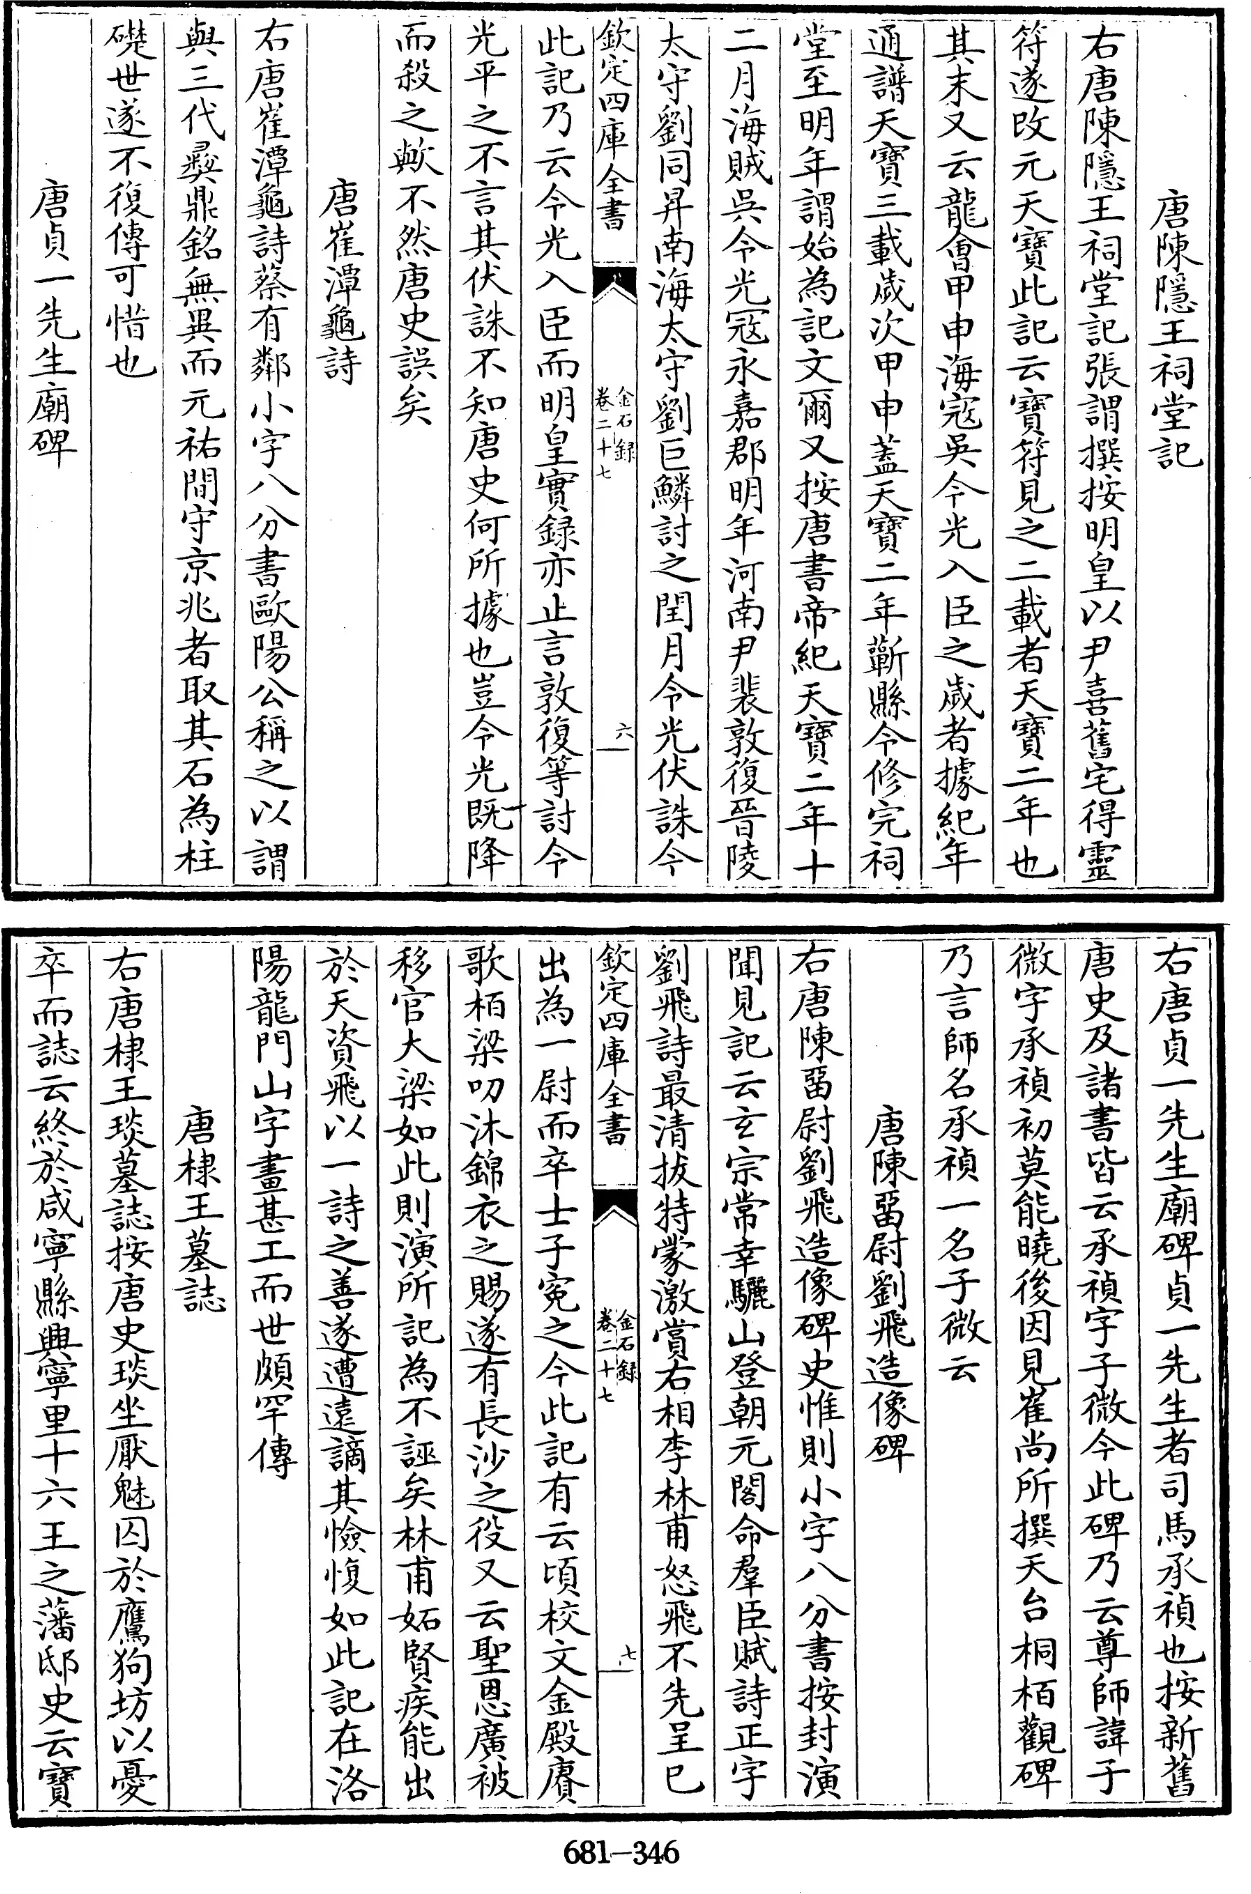 唐陳隱王祠堂記
右唐陳隱王祠堂記張謂撰按明皇以尹喜舊宅得靈
符遂改元天寶此記云寶符見之二載者天寶二年也
其末又云龍會甲申海寇吳令光入臣之歲者據紀年
通譜天寶三載歲次甲申蓋天寶二年蘄縣令修完祠
堂至明年謂始為記文爾又按唐書帝紀天寶二年十
二月海賊吳令光寇永嘉郡明年河南尹裴敦復晉陵
太守劉同昇南海太守劉巨鱗討之閏月令光伏誅今
欽定四庫全書
金石錄
卷二十七
六
此記乃云令光入臣而明皇實録亦止言敦復等討令
光平之不言其伏誅不知唐史何所據也豈令光既降
而殺之歟不然唐史誤矣
唐崔潭龜詩
右唐崔潭龜詩蔡有鄰小字八分書歐陽公稱之以謂
與三代彜鼎銘無異而元祐間守京兆者取其石為柱
礎世遂不復傳可惜也
唐貞一先生廟碑
右唐貞一先生廟碑貞一先生者司馬承禎也按新舊
唐史及諸書皆云承禎字子微今此碑乃云尊師諱子
微字承禎初莫能曉後因見崔尚所撰天台桐栢觀碑
乃言師名承禎一名子微云
唐陳留尉劉飛造像碑
右唐陳留尉劉飛造像碑史惟則小字八分書按封演
聞見記云玄宗常幸驪山登朝元閣命羣臣賦詩正字
劉飛詩最清拔特蒙激賞右相李林甫怒飛不先呈已
欽定四庫全書
金石録
卷二十七
七
出為一尉而卒士子寃之今此記有云頃校文金殿賡
歌栢梁叨沐錦衣之賜遂有長沙之役又云聖恩廣被
移官大梁如此則演所記為不誣矣林甫妬賢疾能出
於天資飛以一詩之善遂遭遠謫其憸愎如此記在洛
陽龍門山字畫甚工而世頗罕傳
唐棣王墓誌
右唐棣王琰墓誌按唐史琰坐厭魅囚於鷹狗坊以憂
卒而誌云終於咸寧縣興寧里十六王之藩邸史云寶
681-346